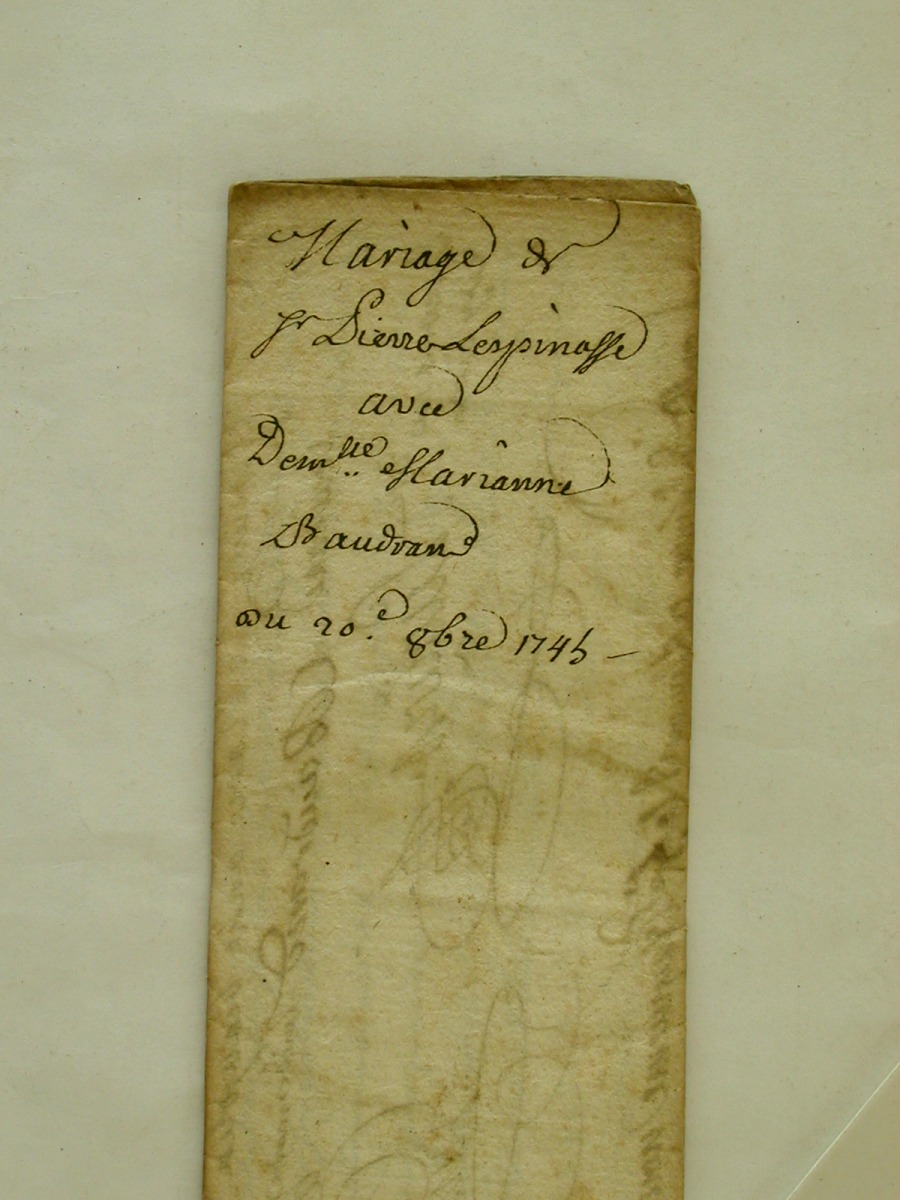 Mariage de
Sr Pierre Lespinasse
avec
Demlle Marianne
Baudrand
Du 20.e 8bre 1745